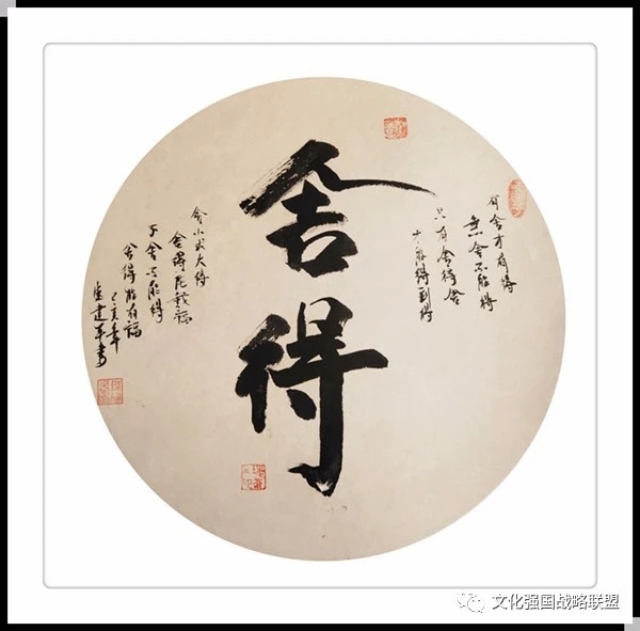 有舍才有得
無舍不能得
只有舍得舍
才能得到得
舍得
舍小求大得
舍得
不舍不能得
舍得有福
己亥年
建军书
文化强国战略联盟